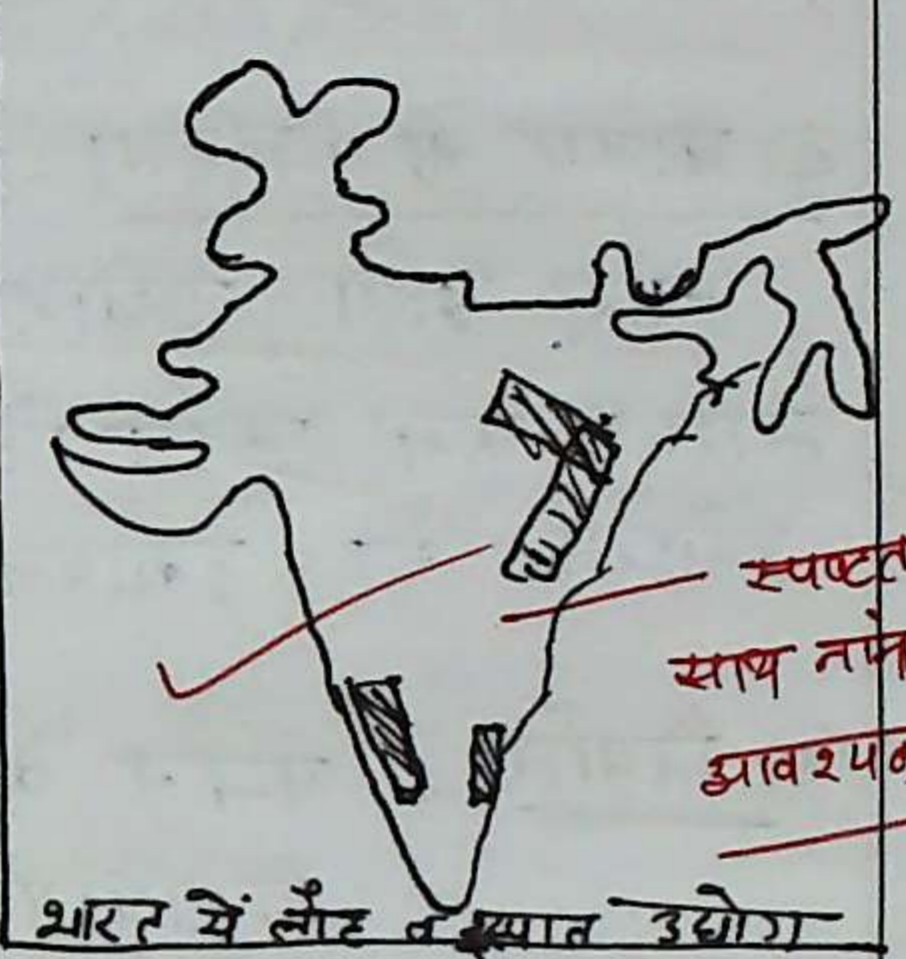 स्पष्टत
साथ
आवश्यक
भारत में लौह व इस्पात उद्योग